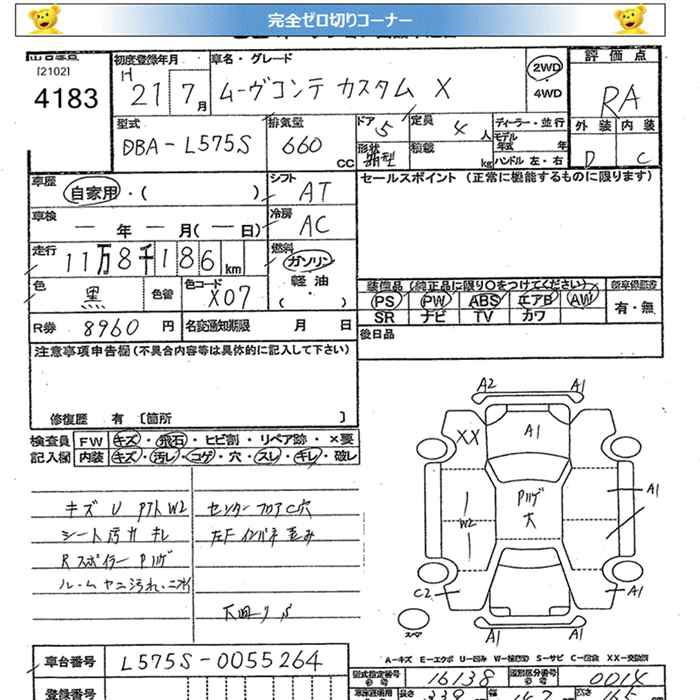 完全ゼロ切りコーナー
[2102]
4183
初度登録年月 車名・グレード
H 21 7月 ムーヴコンテ カスタム X
2WD
・4WD
評価点
RA
外装 内装
D C
型式 排気量 ドア 定員 ディーラー・並行
DBA-L575S 660 CC 5 4人
形状 積載 kg
モデル年式 年
ハンドル 左・右
車歴 シフト セールスポイント (正常に機能するものに限ります)
自家用・( ) AT
車検 冷房
ー 年 ー 月(ー日) AC
走行 燃料
11万8千186km ガソリン
軽油
・( )
色 黒 色替 色コード X07
装備品(純正品に限り○をつけてください)
PS PW ABS エアB AW
SR ナビ TV カワ
有・無
R券 8960円 名変通知期限 月 日
後日品
注意事項申告欄(不具合内容等は具体的に記入して下さい)
修復歴 有 [箇所 ]
検査員 FW キズ・飛石・ヒビ割・リペア跡・×要
記入欄 内装 キズ・汚レ・コゲ・穴・スレ・キレ・破レ
キズ U アリ W2 センターフロア C 穴
シート汚れ キレ 左Fインパネ歪み
Rスポイラー Pハゲ
ルームヤニ汚れ
下回りS
A2 A1
XX A1
W2 Pハゲ 大 A1
C2 A1
スペア A1 A1
A-キズ E-エクボ U-凹み W-補修跡 S-サビ C-腐食 XX-交換跡
車台番号 L575S-0055264
型式指定番号 16138 類別区分番号 0014
登録番号
長さ 339 幅 147 高さ